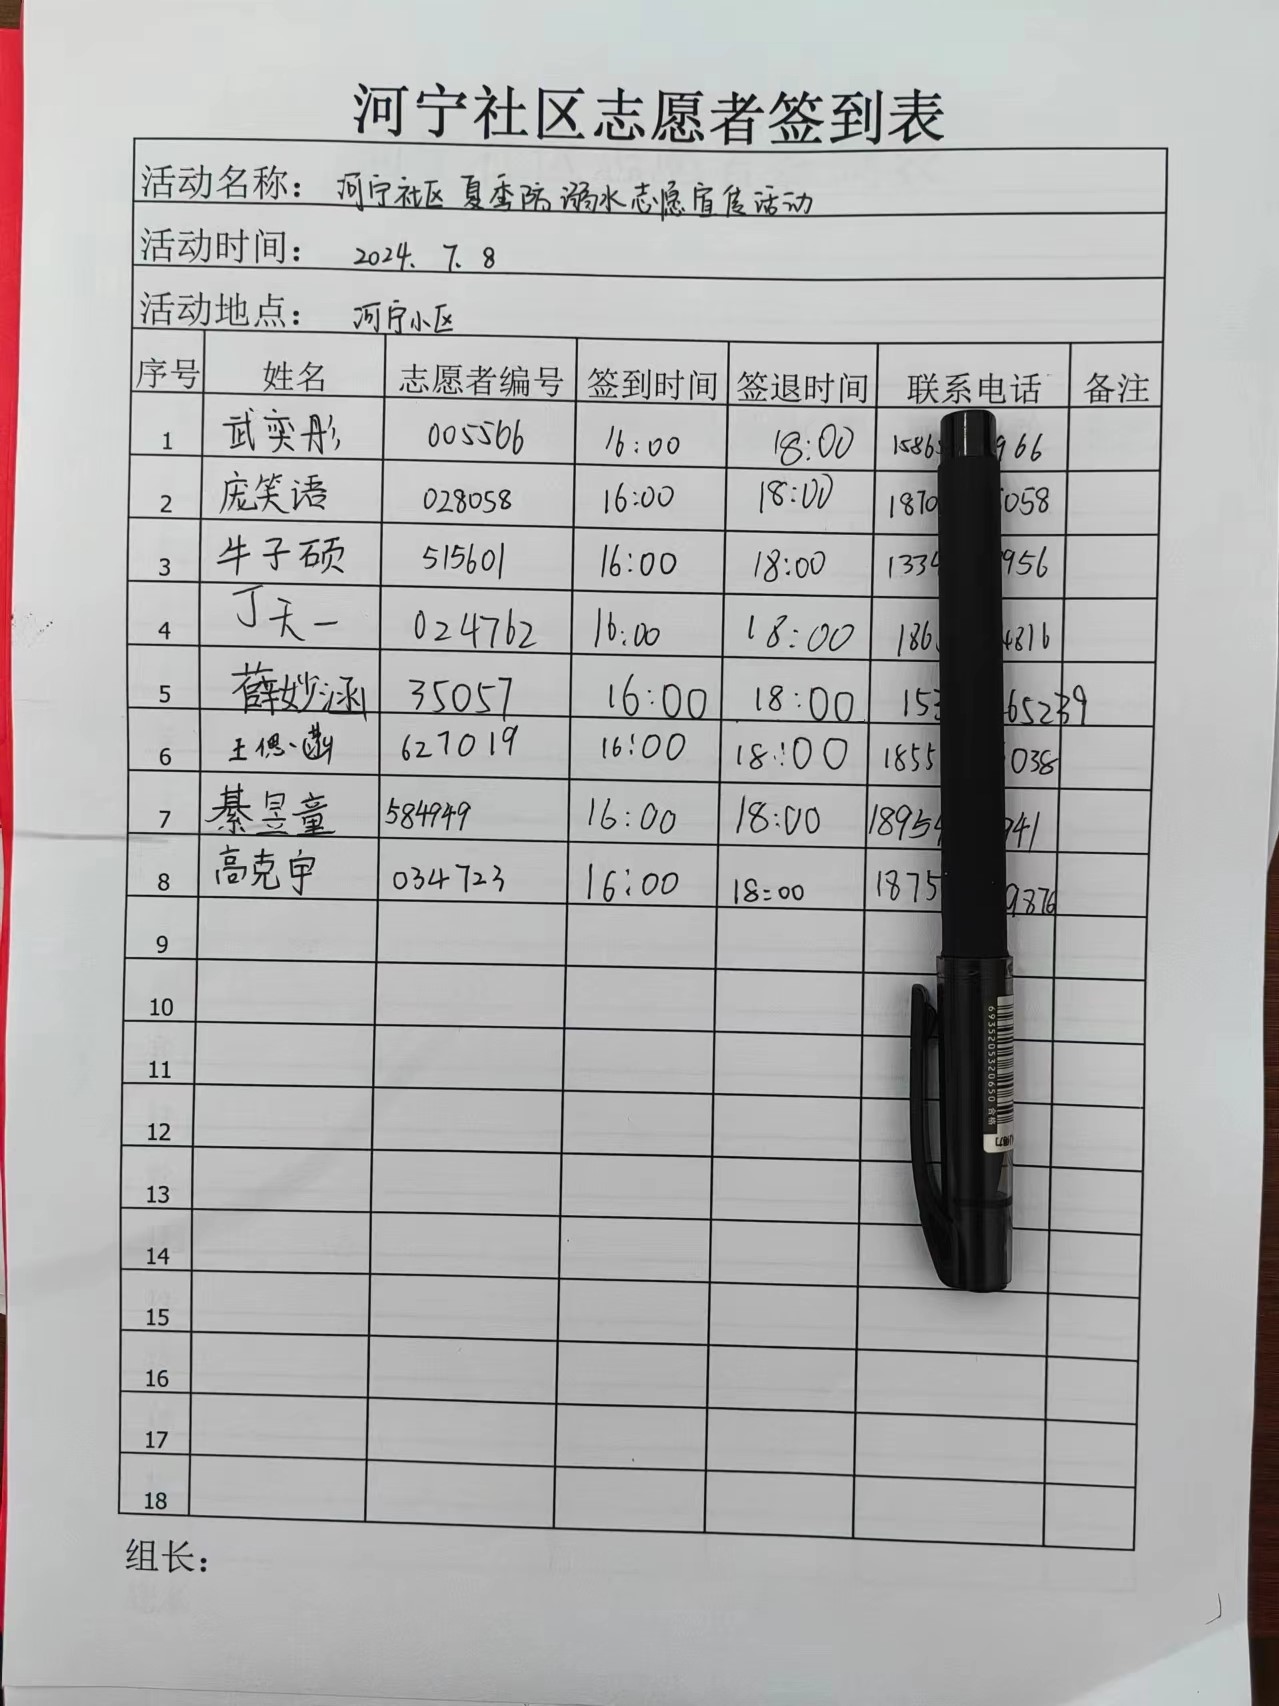 河宁社区志愿者签到表
活动名称： 河宁社区夏季防溺水志愿宣传活动
活动时间： 2024. 7. 8
活动地点： 河宁小区
序号 姓名 志愿者编号 签到时间 签退时间 联系电话 备注
1 武奕彤 005566 16:00 18:00 1586 966
2 庞笑语 028058 16:00 18:00 1870 058
3 牛子硕 515601 16:00 18:00 1334 956
4 丁天一 024762 16:00 18:00 186 816
5 薛妙涵 35057 16:00 18:00 153 65239
6 王偲 627019 16:00 18:00 1855 038
7 綦昱童 584949 16:00 18:00 18954 941
8 高克宇 034723 16:00 18:00 1875 9876
9
10
11
12
13
14
15
16
17
18
组长：
6935205320650 合格